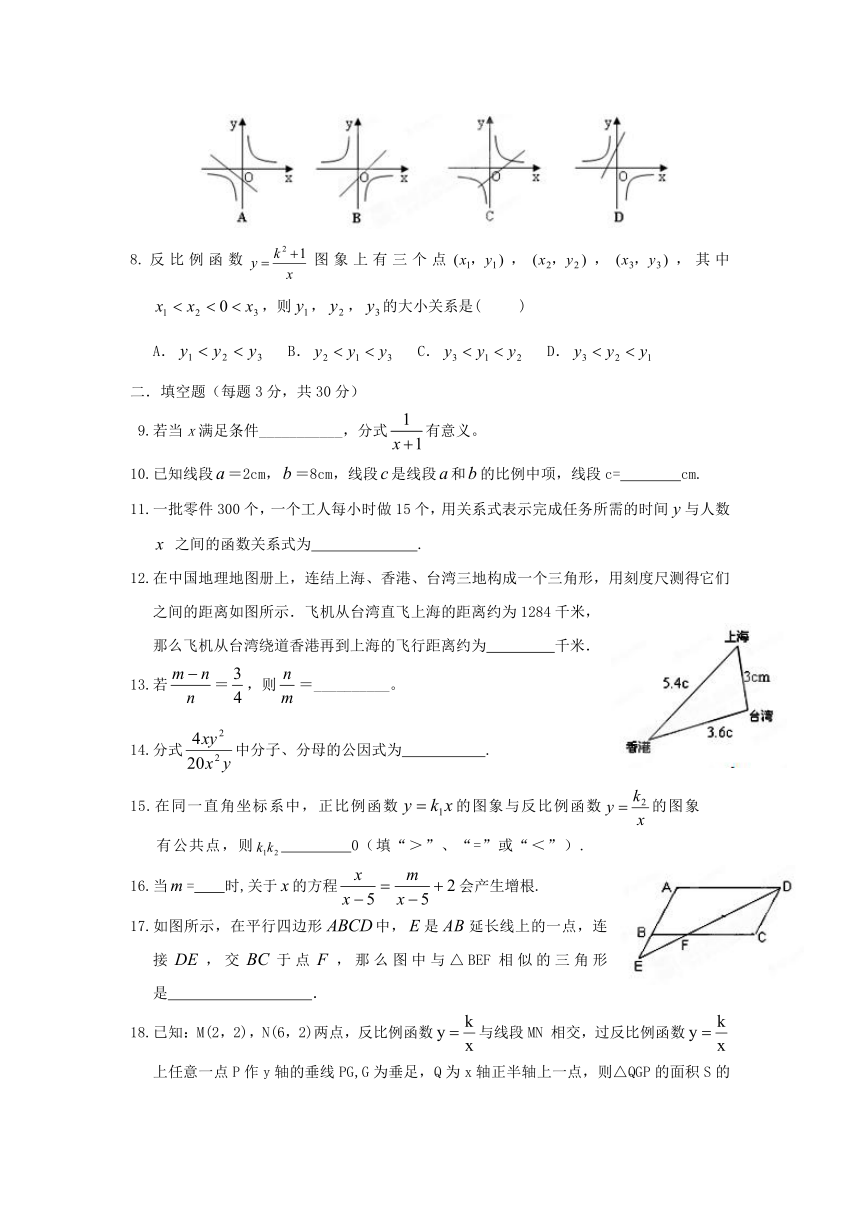 y y y y
O x O x O x O x
A B C D
8. 反比例函数 y = (k²+1)/x 图象上有三个点 (x₁，y₁)，(x₂，y₂)，(x₃，y₃)，其中
x₁ < x₂ < 0 < x₃，则 y₁，y₂，y₃的大小关系是( )
A．y₁ < y₂ < y₃ B．y₂ < y₁ < y₃ C．y₃ < y₁ < y₂ D．y₃ < y₂ < y₁
二．填空题（每题 3 分，共 30 分）
9.若当 x 满足条件___________，分式 1/(x+1) 有意义。
10.已知线段 a =2cm，b =8cm，线段 c 是线段 a 和 b 的比例中项，线段 c=________cm.
11.一批零件 300 个，一个工人每小时做 15 个，用关系式表示完成任务所需的时间 y 与人数
x 之间的函数关系式为______________.
12.在中国地理地图册上，连结上海、香港、台湾三地构成一个三角形，用刻度尺测得它们
之间的距离如图所示．飞机从台湾直飞上海的距离约为 1284 千米，
那么飞机从台湾绕道香港再到上海的飞行距离约为_________千米.
上海
5.4c 3cm
台湾
3.6c
香港
13.若 (m−n)/n = 3/4，则 n/m =__________。
14.分式 4xy²/20x²y 中分子、分母的公因式为___________.
15.在同一直角坐标系中，正比例函数 y = k₁x 的图象与反比例函数 y = k₂/x 的图象
有公共点，则 k₁k₂_________0（填“＞”、“=”或“＜”）.
16.当 m =____时,关于 x 的方程 x/(x−5) = m/(x−5) + 2 会产生增根.
17.如图所示，在平行四边形 ABCD 中，E 是 AB 延长线上的一点，连
接 DE ，交 BC 于点 F ，那么图中与△BEF 相似的三角形
是___________________.
A D
B F C
E
18.已知:M(2，2),N(6，2)两点，反比例函数 y = k/x 与线段 MN 相交，过反比例函数 y = k/x
上任意一点 P 作 y 轴的垂线 PG,G 为垂足，Q 为 x 轴正半轴上一点，则△QGP 的面积 S 的